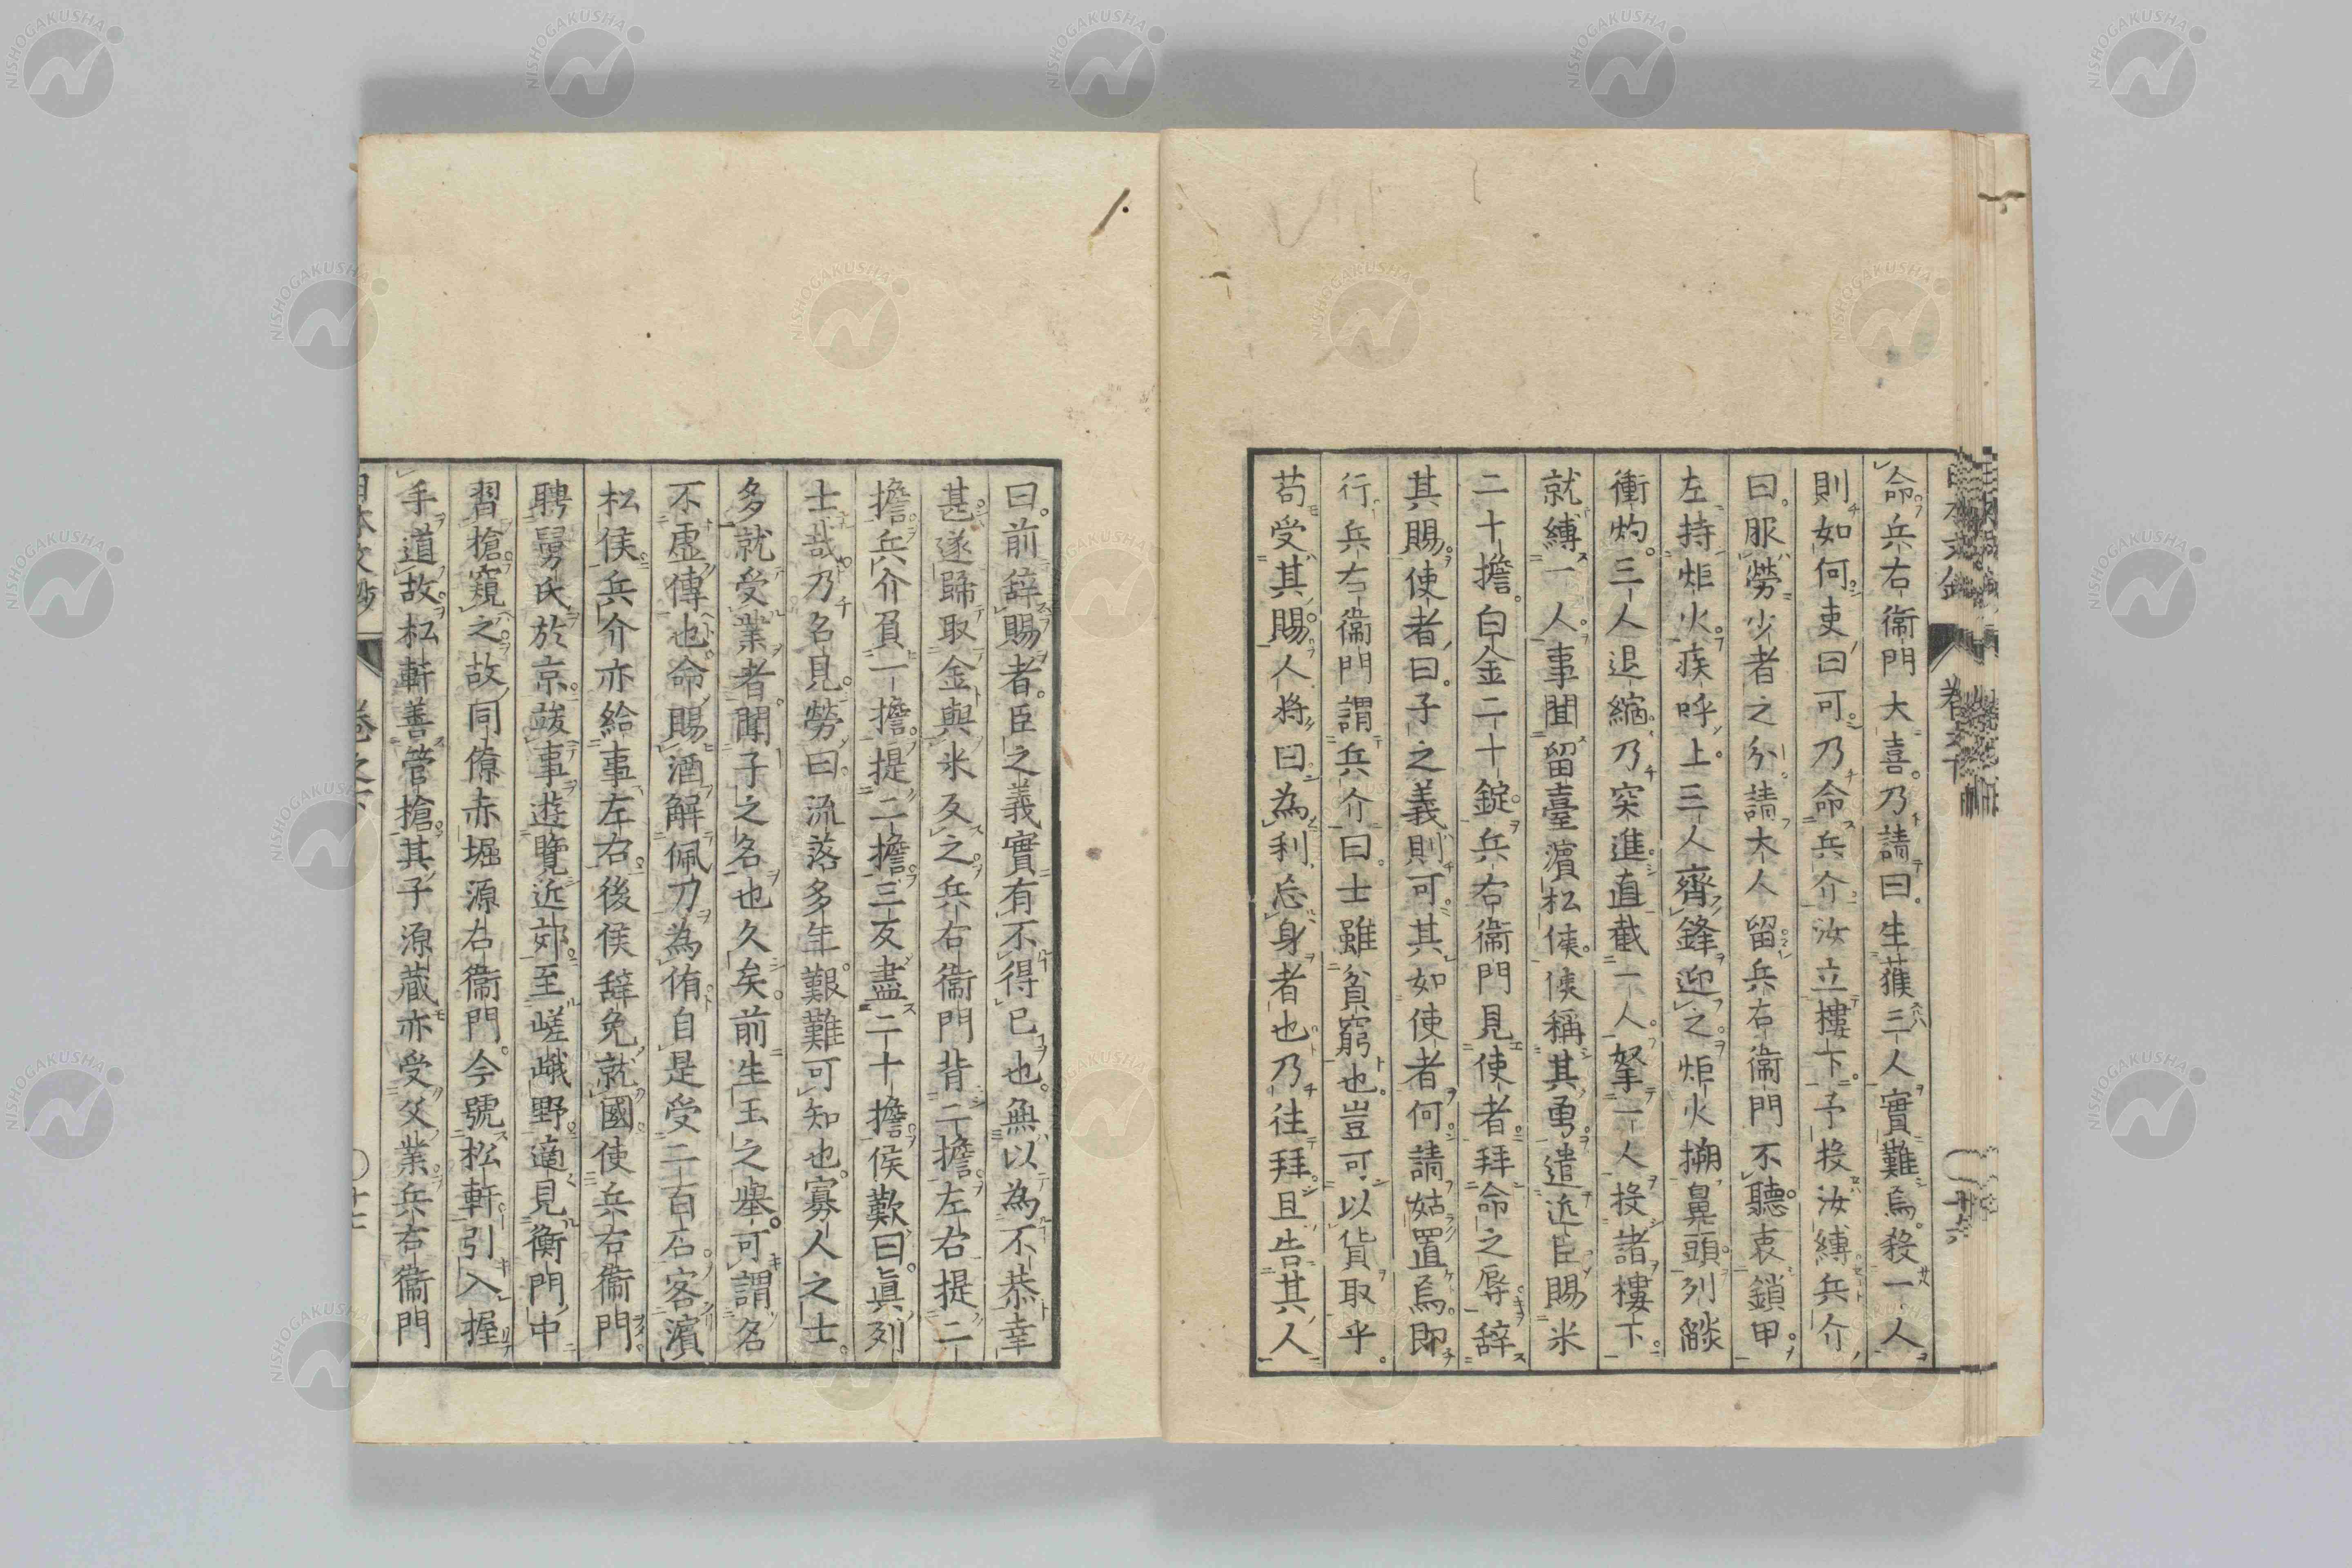 命兵右衞門大喜。乃請曰。生獲三人實難焉。殺一人
則如何。吏曰可。乃命兵介汝立樓下。予投汝縛。兵介
曰。服勞少者之分。請大人留。兵右衞門不聽。衷鎖甲。
左持炬火。疾呼上。三人齊鋒迎之。炬火搠鼻頭。列燄
衝灼。三人退縮。乃突進。直截一人。拏一人投諸樓下。
就縛一人。事聞留臺濵松侯。侯稱其勇。遣近臣賜米
二十擔。白金二十錠。兵右衞門見使者。拜命之辱。辞
其賜。使者曰。子之義則可。其如使者何。請姑置焉。卽
行。兵右衞門謂兵介曰。士雖貧窮也。豈可以貨取乎。
苟受其賜。人將曰。為利忘身者也。乃徃拜。且告其人
曰。前辞賜者。臣之義實有不得已也。無以為不恭幸
甚。遂歸取金與米反之。兵右衞門背二擔。左右提二
擔。兵介負一擔。提二擔。三反盡二十擔。侯歎曰。眞列
士哉。乃名見。勞曰。流落多年。艱難可知也。寡人之士。
多就受業者。聞子之名也久矣。前生玉之擧。可謂名
不虛傳也。命賜酒解佩刀為侑。自是受二百石。客濵
松侯。兵介亦給事左右。後侯辞免就國。使兵右衞門
聘舅氏於京。竣事遊覽近郊。至嵯峨野。適見衡門中
習搶。窺之。故同僚赤堀源右衞門。今號松軒。引入握
手道故。松軒善管搶。其子源藏亦受父業。兵右衞門